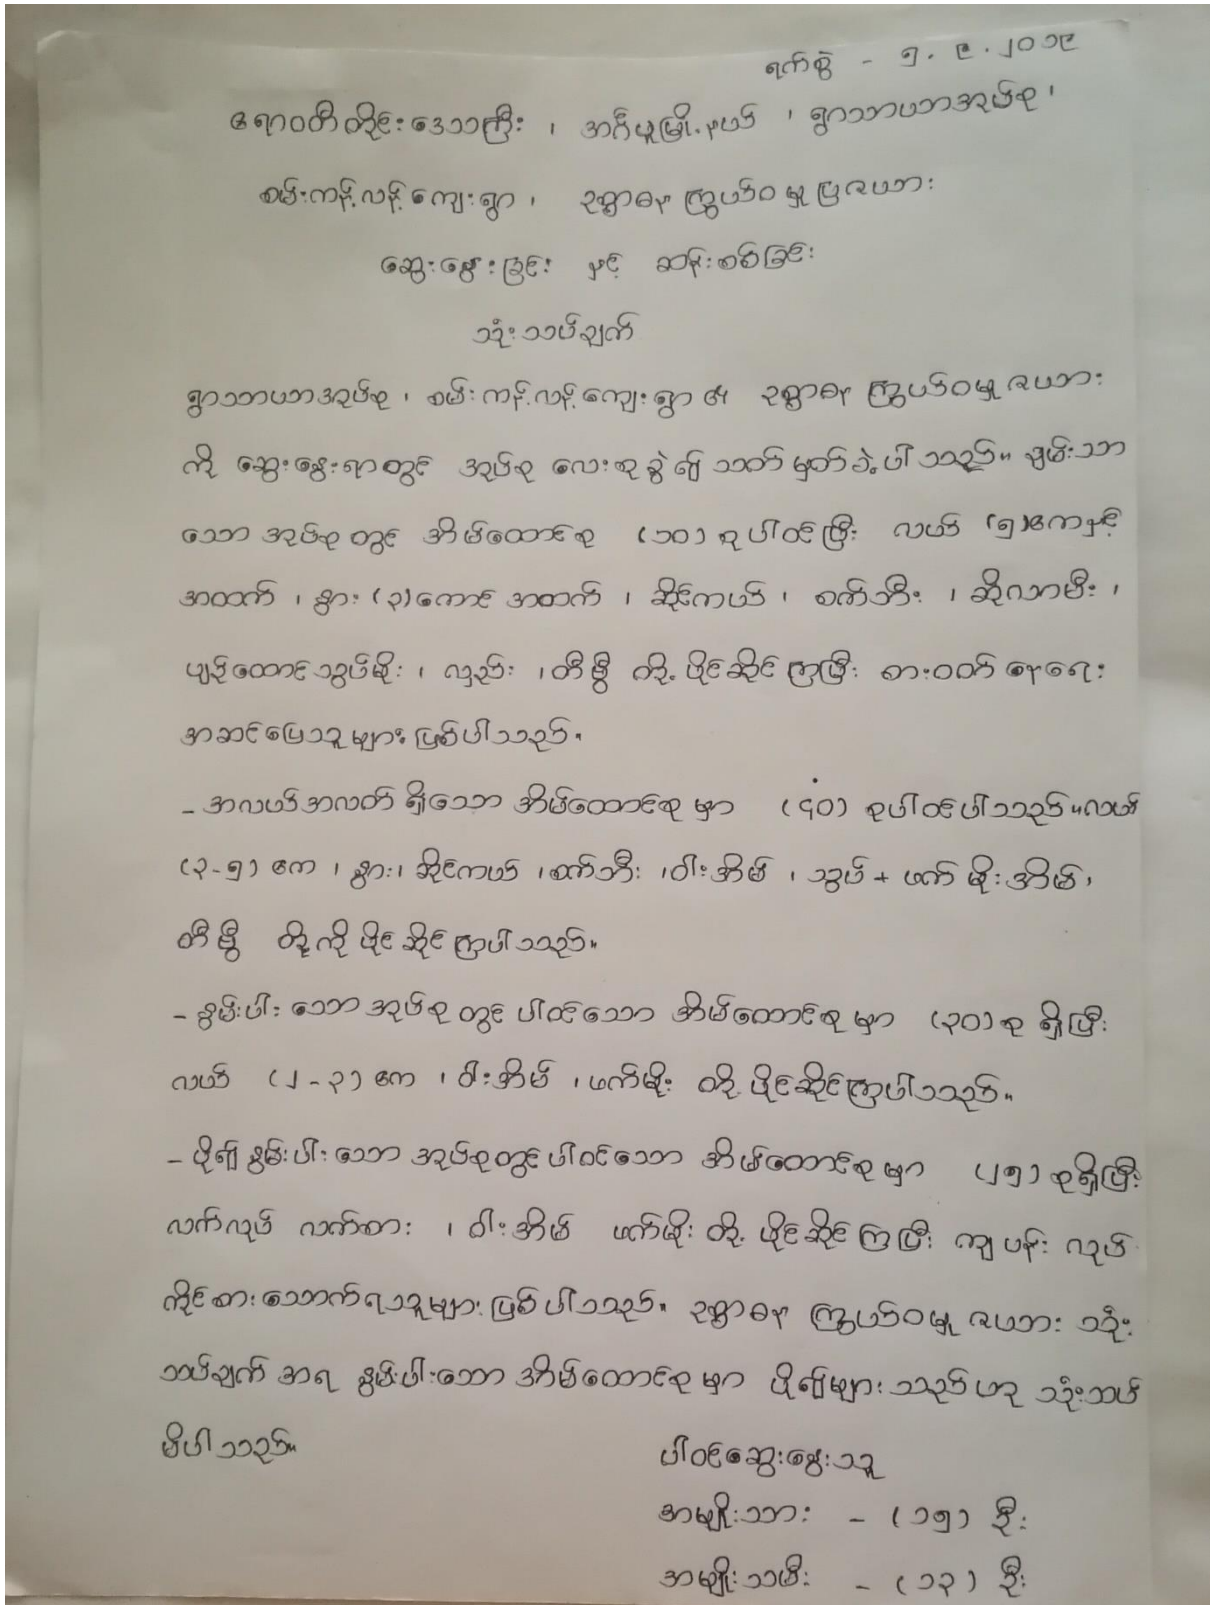 ရက်စွဲ - ၅.၉.၂၀၁၉
ဧရာဝတီတိုင်းဒေသကြီး ၊ အင်္ဂပူမြို့နယ် ၊ ရွာသာယာအုပ်စု ၊
စမ်းကန့်လန့်ကျေးရွာ ၊ ဥစ္စာဓန ကြွယ်ဝမှုပြဇယား
ဆွေးနွေးခြင်း နှင့် ဆန်းစစ်ခြင်း
သုံးသပ်ချက်
ရွာသာယာအုပ်စု ၊ စမ်းကန့်လန့်ကျေးရွာ ၏ ဥစ္စာဓန ကြွယ်ဝမှုဇယား
ကို ဆွေးနွေးရာတွင် အုပ်စု လေးစုခွဲ၍ သတ်မှတ်ခဲ့ပါသည်။ ချမ်းသာ
သော အုပ်စုတွင် အိမ်ထောင်စု (၁၀) စုပါဝင်ပြီး လယ် (၅)ဧကနှင့်
အထက် ၊ နွား (၃)ကောင် အထက် ၊ ဆိုင်ကယ် ၊ စက်ဘီး ၊ ဆိုလာမီး ၊
ပျဉ်ထောင်သွပ်မိုး ၊ လှည်း ၊ တီဗွီ တို့ ပိုင်ဆိုင်ကြပြီး စားဝတ်နေရေး
အဆင်ပြေသူများ ဖြစ်ပါသည်။
- အလယ်အလတ် ရှိသော အိမ်ထောင်စု မှာ (၄၀) စုပါဝင်ပါသည်။ လယ်
(၃-၅) ဧက ၊ နွား၊ ဆိုင်ကယ် ၊ စက်ဘီး ၊ ဝါးအိမ် ၊ သွပ် + ဖက် မိုးအိမ်၊
တီဗွီ တို့ကို ပိုင်ဆိုင်ကြပါသည်။
- နွမ်းပါးသော အုပ်စုတွင် ပါဝင်သော အိမ်ထောင်စု မှာ (၃၀) စု ရှိပြီး
လယ် (၂-၃) ဧက ၊ ဝါးအိမ် ၊ ဖက်မိုး တို့ ပိုင်ဆိုင်ကြပါသည်။
- ပို၍ နွမ်းပါးသော အုပ်စုတွင် ပါဝင်သော အိမ်ထောင်စု မှာ (၂၅) စုရှိပြီး
လက်လုပ် လက်စား ၊ ဝါးအိမ် ဖက်မိုး တို့ ပိုင်ဆိုင်ကြပြီး ကျပန်း လုပ်
ကိုင်စားသောက်ရသူများ ဖြစ်ပါသည်။ ဥစ္စာဓန ကြွယ်ဝမှု ဇယား သုံး
သပ်ချက် အရ နွမ်းပါးသော အိမ်ထောင်စု မှာ ပို၍များသည်ဟု သုံးသပ်
မိပါသည်။
ပါဝင်ဆွေးနွေးသူ
အမျိုးသား - (၁၅) ဦး
အမျိုးသမီး - (၁၃) ဦး